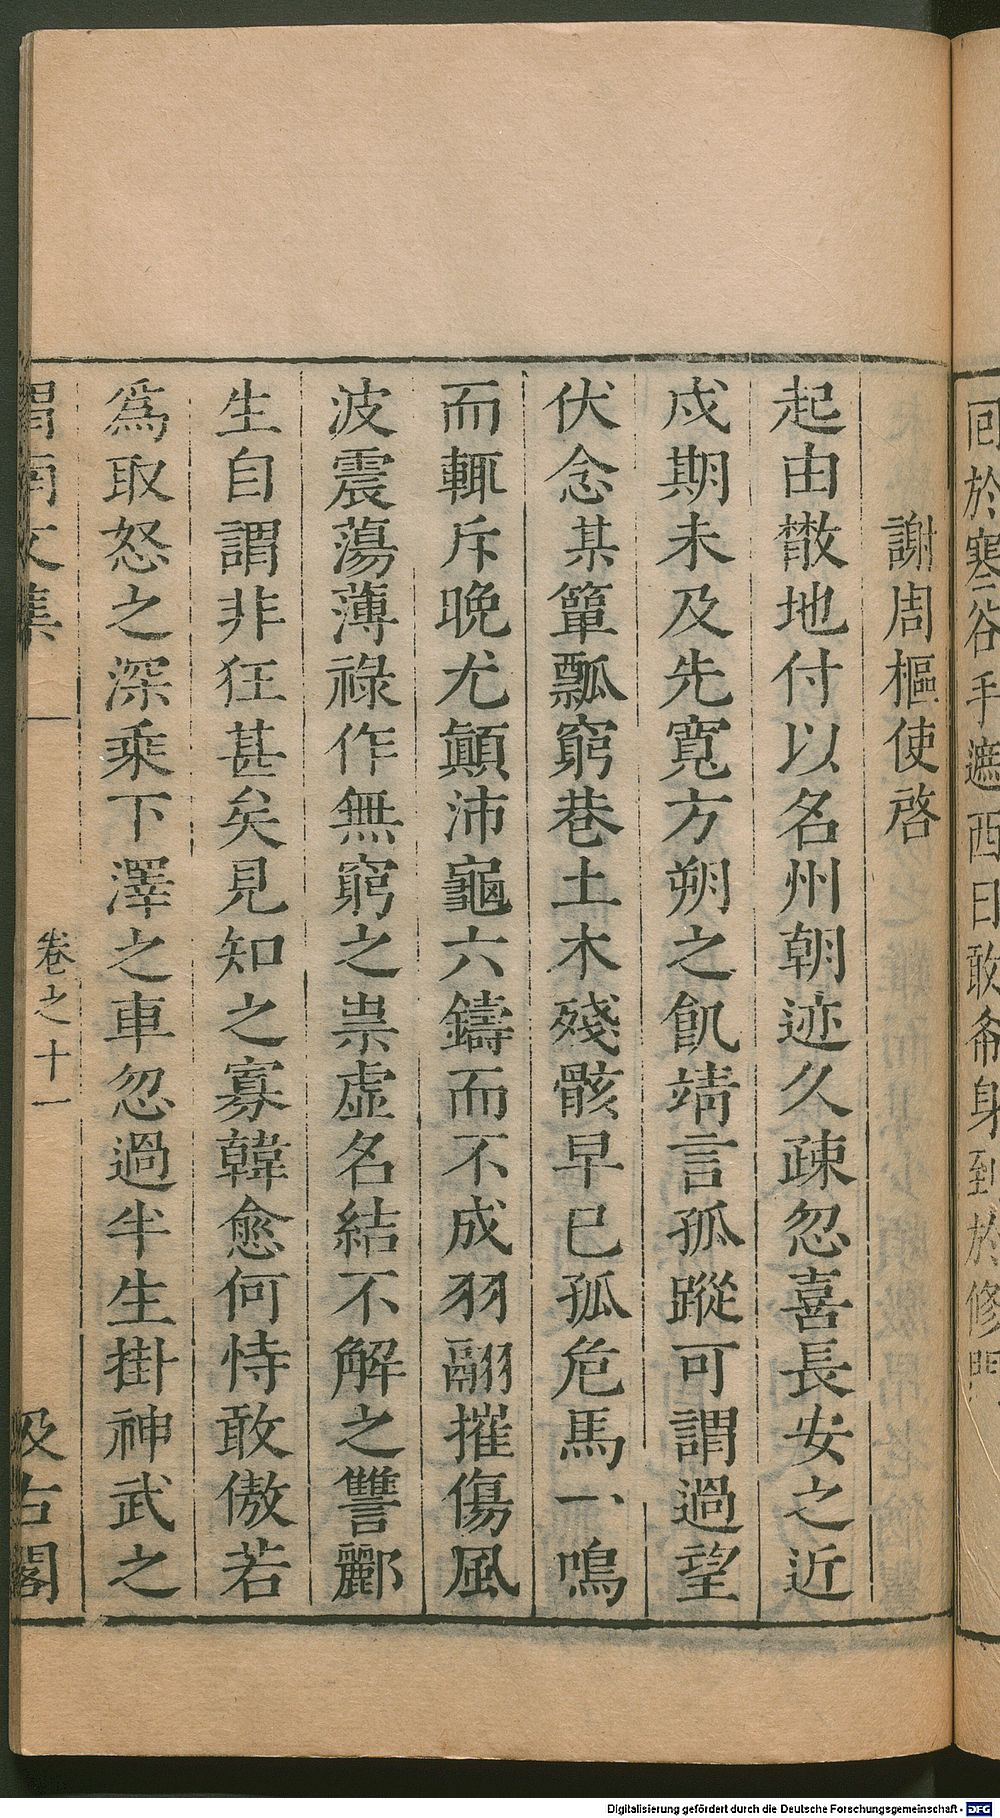 謝周樞使啓
起由散地付以名州朝迹久疎忽喜長安之近
戍期未及先寬方朔之飢靖言孤蹤可謂過望
伏念某簞瓢窮巷土木殘骸早已孤危馬一鳴
而輒斥晚尤顛沛龜六鑄而不成羽翮摧傷風
波震蕩薄祿作無窮之祟虛名結不解之讐酈
生自謂非狂甚矣見知之寡韓愈何恃敢傲若
為取怒之深乘下澤之車忽過半生掛神武之
渭南文集 卷之十一 汲古閣
於寒谷手遮西日敢身到於修門
Digitalisierung gefördert durch die Deutsche Forschungsgemeinschaft - DFG